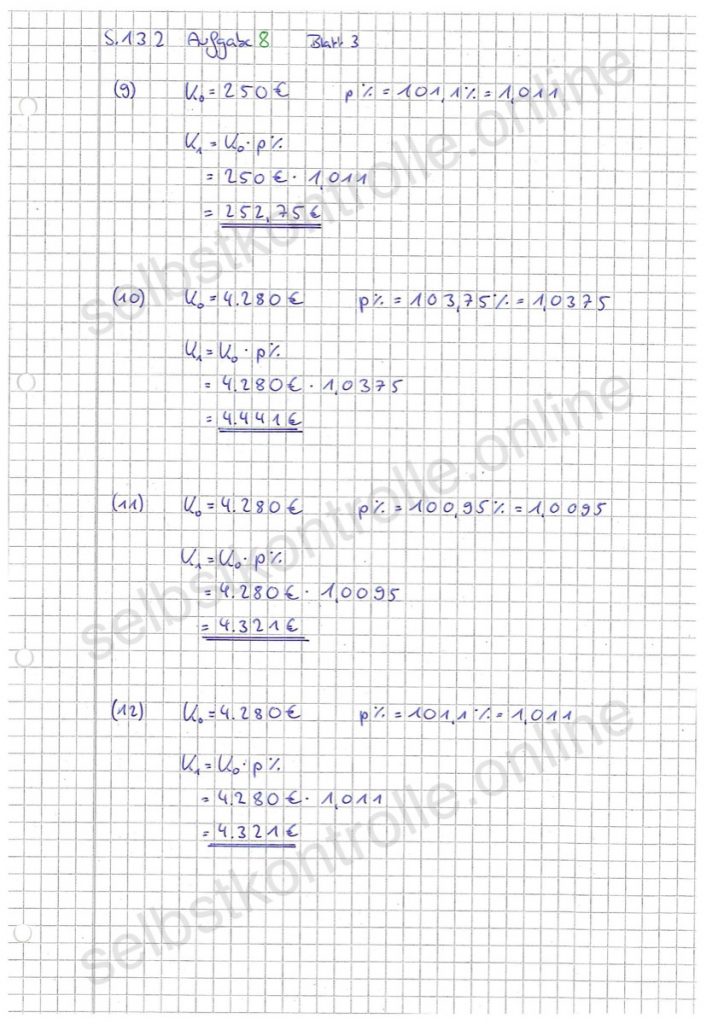 S.132 Aufgabe 8 Blatt 3
(9) K₀ = 250 € p% = 101,1% = 1,011
K₁ = K₀ · p%
= 250 € · 1,011
= 252,75 €
(10) K₀ = 4.280 € p% = 103,75% = 1,0375
K₁ = K₀ · p%
= 4.280 € · 1,0375
= 4.441 €
(11) K₀ = 4.280 € p% = 100,95% = 1,0095
K₁ = K₀ · p%
= 4.280 € · 1,0095
= 4.321 €
(12) K₀ = 4.280 € p% = 101,1% = 1,011
K₁ = K₀ · p%
= 4.280 € · 1,011
= 4.321 €
selbstkontrolle.online
selbstkontrolle.online
selbstkontrolle.online